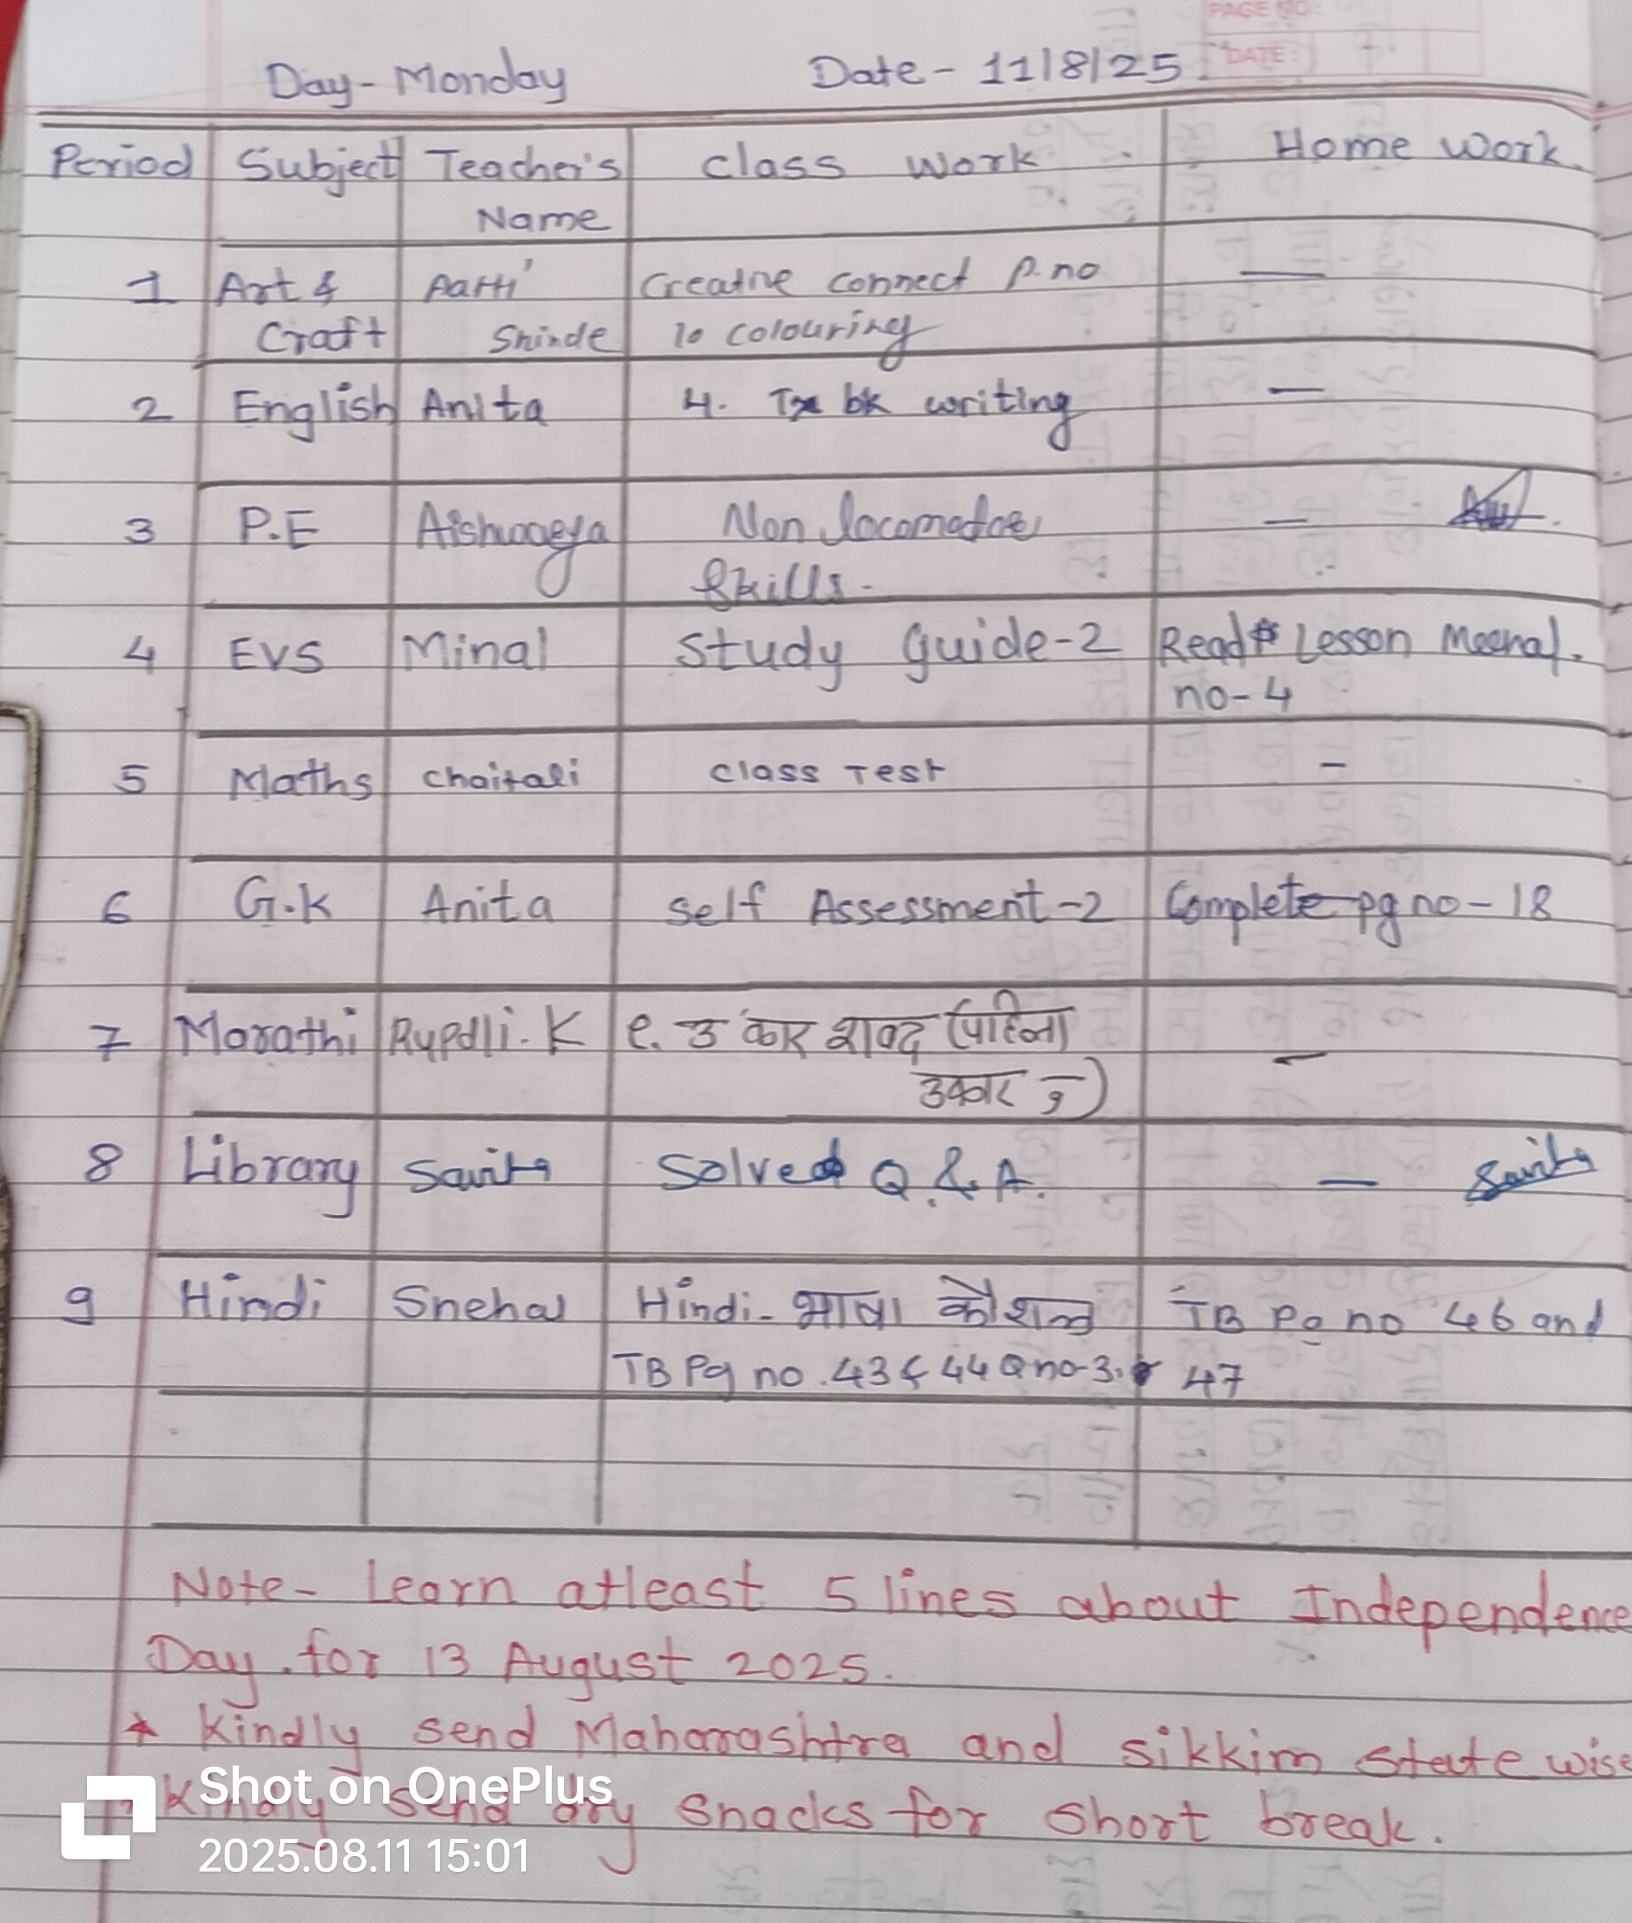 PAGE NO:
DATE:
Day - Monday Date - 11/8/25
Period Subject Teacher's class work Home work.
Name
1 Art & Aarti Creative connect P.no —
Craft Shinde 10 colouring
2 English Anita 4. bk writing —
3 P.E Non locomotor —
Skills.
4 EVS Minal study guide-2 Read Lesson Meenal.
no-4
5 Maths chaitali class Test -
6 G.k Anita self Assessment-2 Complete pg no-18
7 Marathi Rupali.K उ कार शब्द (पहिला —
उकार ु)
8 Library Savita Solved Q. & A. — Savita
9 Hindi Snehal Hindi- भाषा कौशल TB Pg no 46 and
TB Pg no.43 & 44 Q no-3. 47
Note- Learn atleast 5 lines about Independence
Day. for 13 August 2025.
* Kindly send Maharashtra and sikkim state wise
Shot on OnePlus
* Kindly send dry snacks for short break.
2025.08.11 15:01